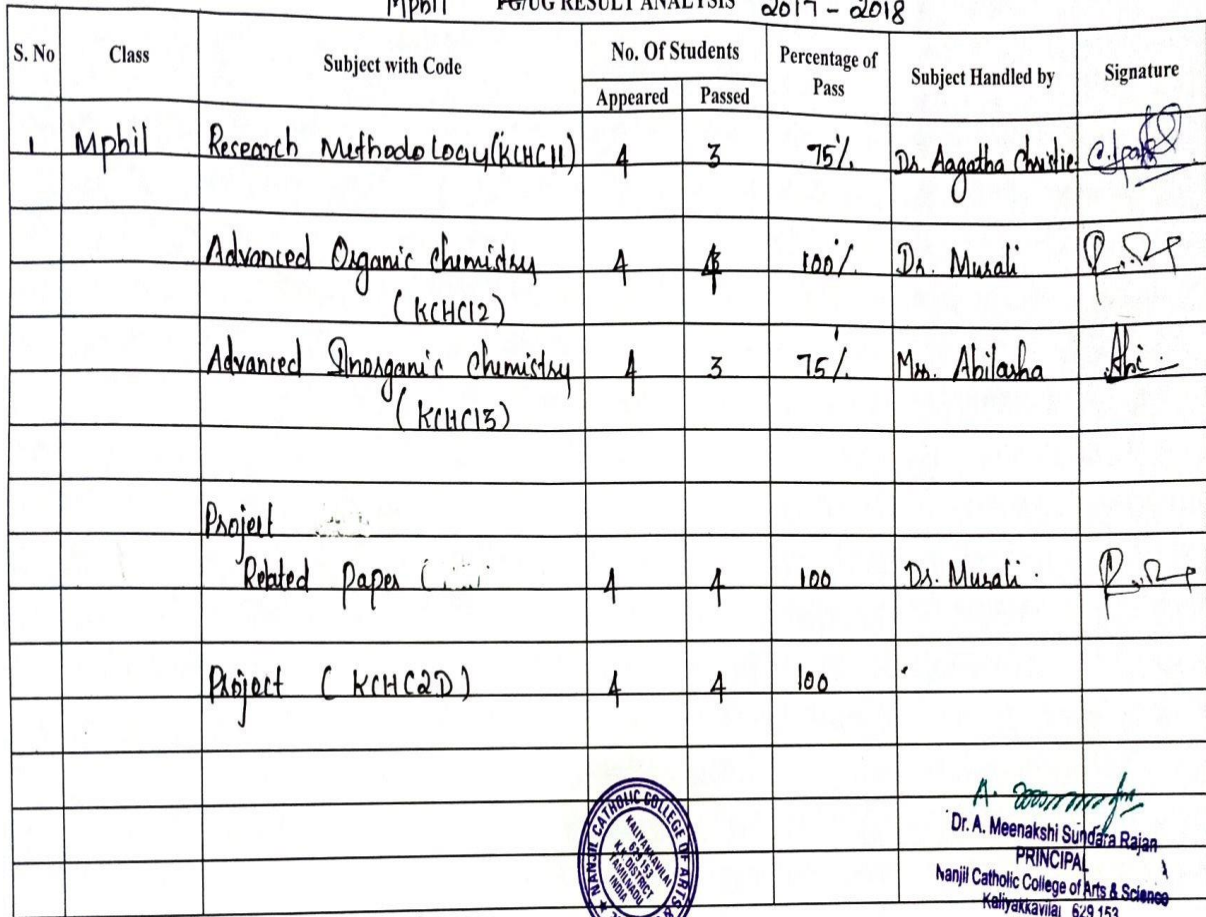 Mphil PG/UG RESULT ANALYSIS 2017 - 2018
S. No Class Subject with Code No. Of Students Percentage of Pass Subject Handled by Signature
Appeared Passed
1 Mphil Research Methodology (KCHC11) 4 3 75% Dr. Aagatha Christie
Advanced Organic Chemistry 4 4 100% Dr. Murali
(KCHC12)
Advanced Inorganic Chemistry 4 3 75% Mrs. Abilasha Abi
(KCHC13)
Project
Related Paper ( 4 4 100 Dr. Murali.
Project (KCHC2D) 4 4 100
NANJIL CATHOLIC COLLEGE OF ARTS &
KALIYAKKAVILAI
629 153
K.K. DISTRICT
TAMILNADU
INDIA
Dr. A. Meenakshi Sundara Rajan
PRINCIPAL
Nanjil Catholic College of Arts & Science
Kaliyakkavilai 629 153